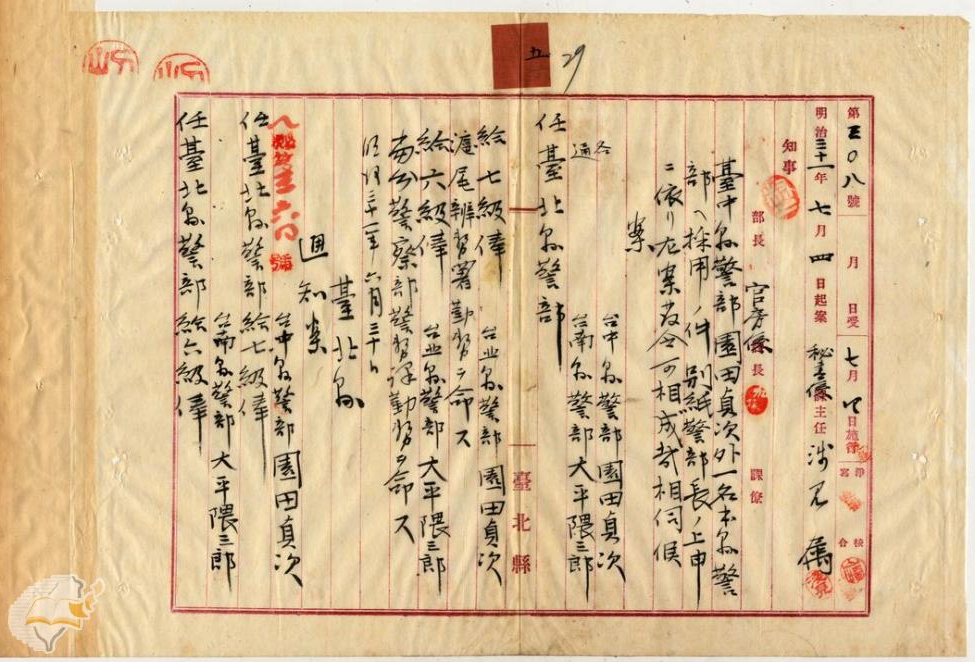 五 29
第三〇八號 月 日受 七月 日施行 淨寫 校合
明治三十一年七月四日起案 秘書係課主任 属
知事 部長 官房係長 課僚
臺中縣警部園田貞次外一名本縣警
部ヘ採用ノ件別紙警部長ノ上申
ニ依リ左案發令可相成哉相伺候
案
各通 台中縣警部 園田貞次
台南縣警部 大平隈三郎
任臺北縣警部
臺北縣
台北縣警部 園田貞次
給七級俸
滬尾辨務署勤務ヲ命ス
台北縣警部 大平隈三郎
給六級俸
警察部警務課勤務ヲ命ス
明治三十一年六月三十日
臺北縣
通知案
台中縣警部 園田貞次
任臺北縣警部 給七級俸
台南縣警部 大平隈三郎
任臺北縣警部 給六級俸